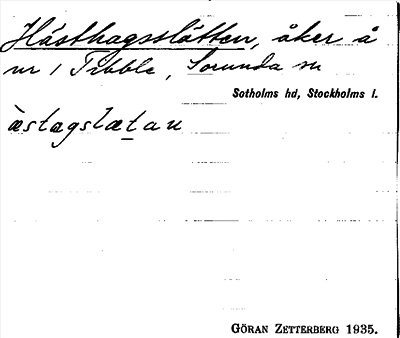 Hästhagsslätten, åker å
nr 1 Tibble, Sorunda sn
Sotholms hd, Stockholms l.
æ̀stagslæṯaṉ
GÖRAN ZETTERBERG 1935.